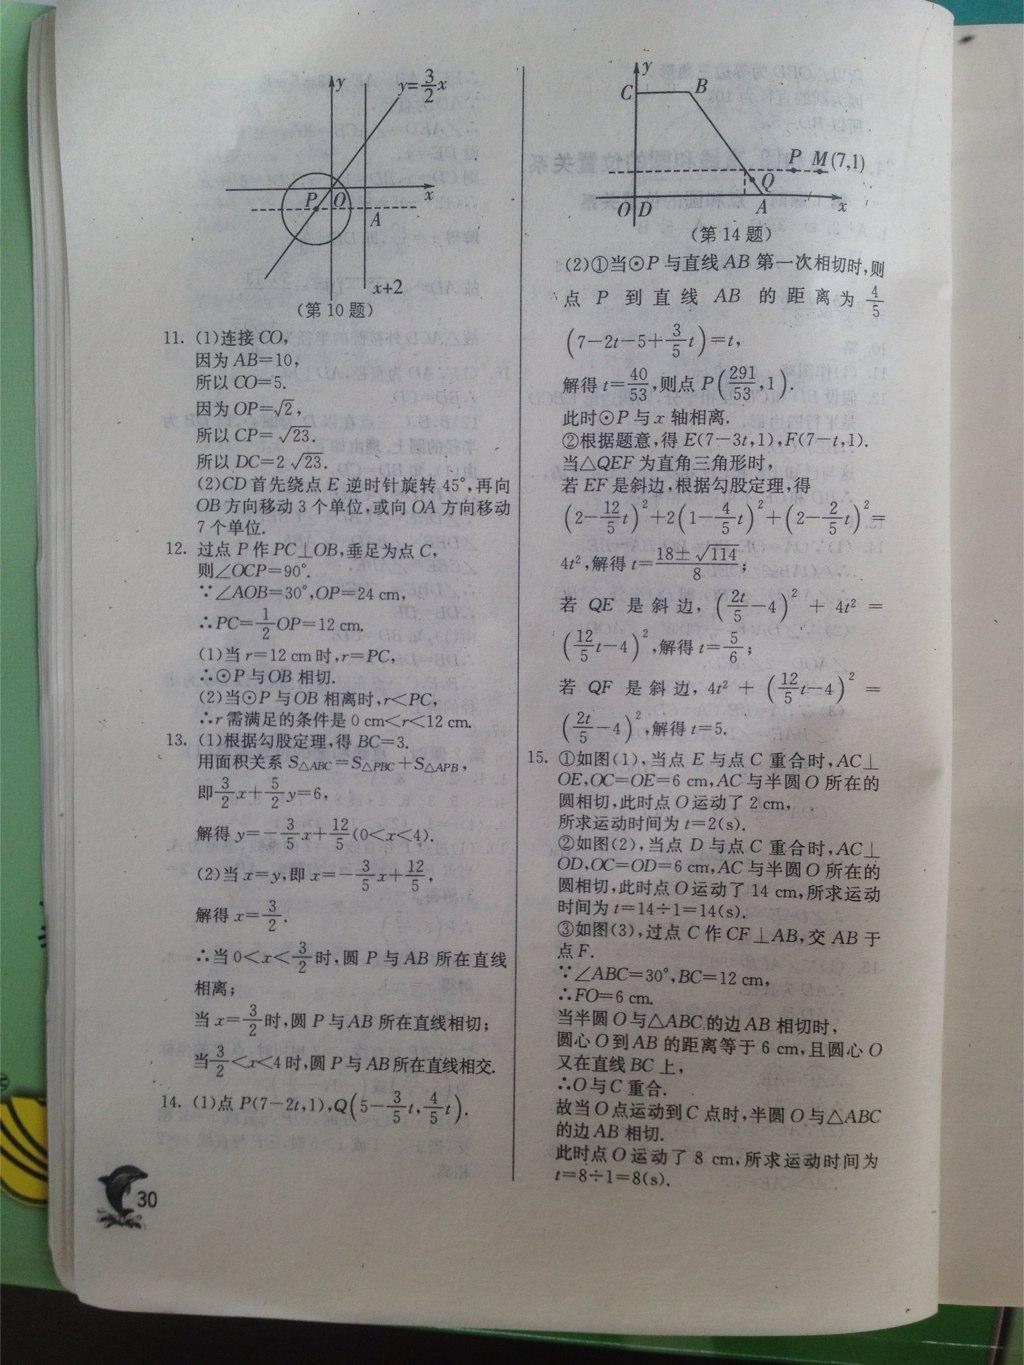 y
y=3/2x
P
O
x
A
x+2
(第10题)
11. (1)连接CO,
因为AB=10,
所以CO=5.
因为OP=√2,
所以CP=√23.
所以DC=2√23.
(2)CD首先绕点E逆时针旋转45°,再向
OB方向移动3个单位,或向OA方向移动
7个单位.
12. 过点P作PC⊥OB,垂足为点C,
则∠OCP=90°.
∵∠AOB=30°,OP=24 cm,
∴PC=1/2OP=12 cm.
(1)当r=12 cm时,r=PC,
∴⊙P与OB相切.
(2)当⊙P与OB相离时,r<PC,
∴r需满足的条件是0 cm<r<12 cm.
13. (1)根据勾股定理,得BC=3.
用面积关系S△ABC=S△PBC+S△APB,
即3/2x+5/2y=6,
解得y=-3/5x+12/5(0<x<4).
(2)当x=y,即x=-3/5x+12/5,
解得x=3/2.
∴当0<x<3/2时,圆P与AB所在直线
相离;
当x=3/2时,圆P与AB所在直线相切;
当3/2<x<4时,圆P与AB所在直线相交.
14. (1)点P(7-2t,1),Q(5-3/5t,4/5t).
30
y
C
B
P
M(7,1)
Q
O
D
A
x
(第14题)
(2)①当⊙P与直线AB第一次相切时,则
点P到直线AB的距离为4/5
(7-2t-5+3/5t)=t,
解得t=40/53,则点P(291/53,1).
此时⊙P与x轴相离.
②根据题意,得E(7-3t,1),F(7-t,1).
当△QEF为直角三角形时,
若EF是斜边,根据勾股定理,得
(2-12/5t)²+2(1-4/5t)²+(2-2/5t)²=
4t²,解得t=(18±√114)/8;
若QE是斜边,(2t/5-4)²+4t²=
(12/5t-4)²,解得t=5/6;
若QF是斜边,4t²+(12/5t-4)²=
(2t/5-4)²,解得t=5.
15. ①如图(1),当点E与点C重合时,AC⊥
OE,OC=OE=6 cm,AC与半圆O所在的
圆相切,此时点O运动了2 cm,
所求运动时间为t=2(s).
②如图(2),当点D与点C重合时,AC⊥
OD,OC=OD=6 cm,AC与半圆O所在的
圆相切,此时点O运动了14 cm,所求运动
时间为t=14÷1=14(s).
③如图(3),过点C作CF⊥AB,交AB于
点F.
∵∠ABC=30°,BC=12 cm,
∴FO=6 cm.
当半圆O与△ABC的边AB相切时,
圆心O到AB的距离等于6 cm,且圆心O
又在直线BC上,
∴O与C重合.
故当O点运动到C点时,半圆O与△ABC
的边AB相切.
此时点O运动了8 cm,所求运动时间为
t=8÷1=8(s).